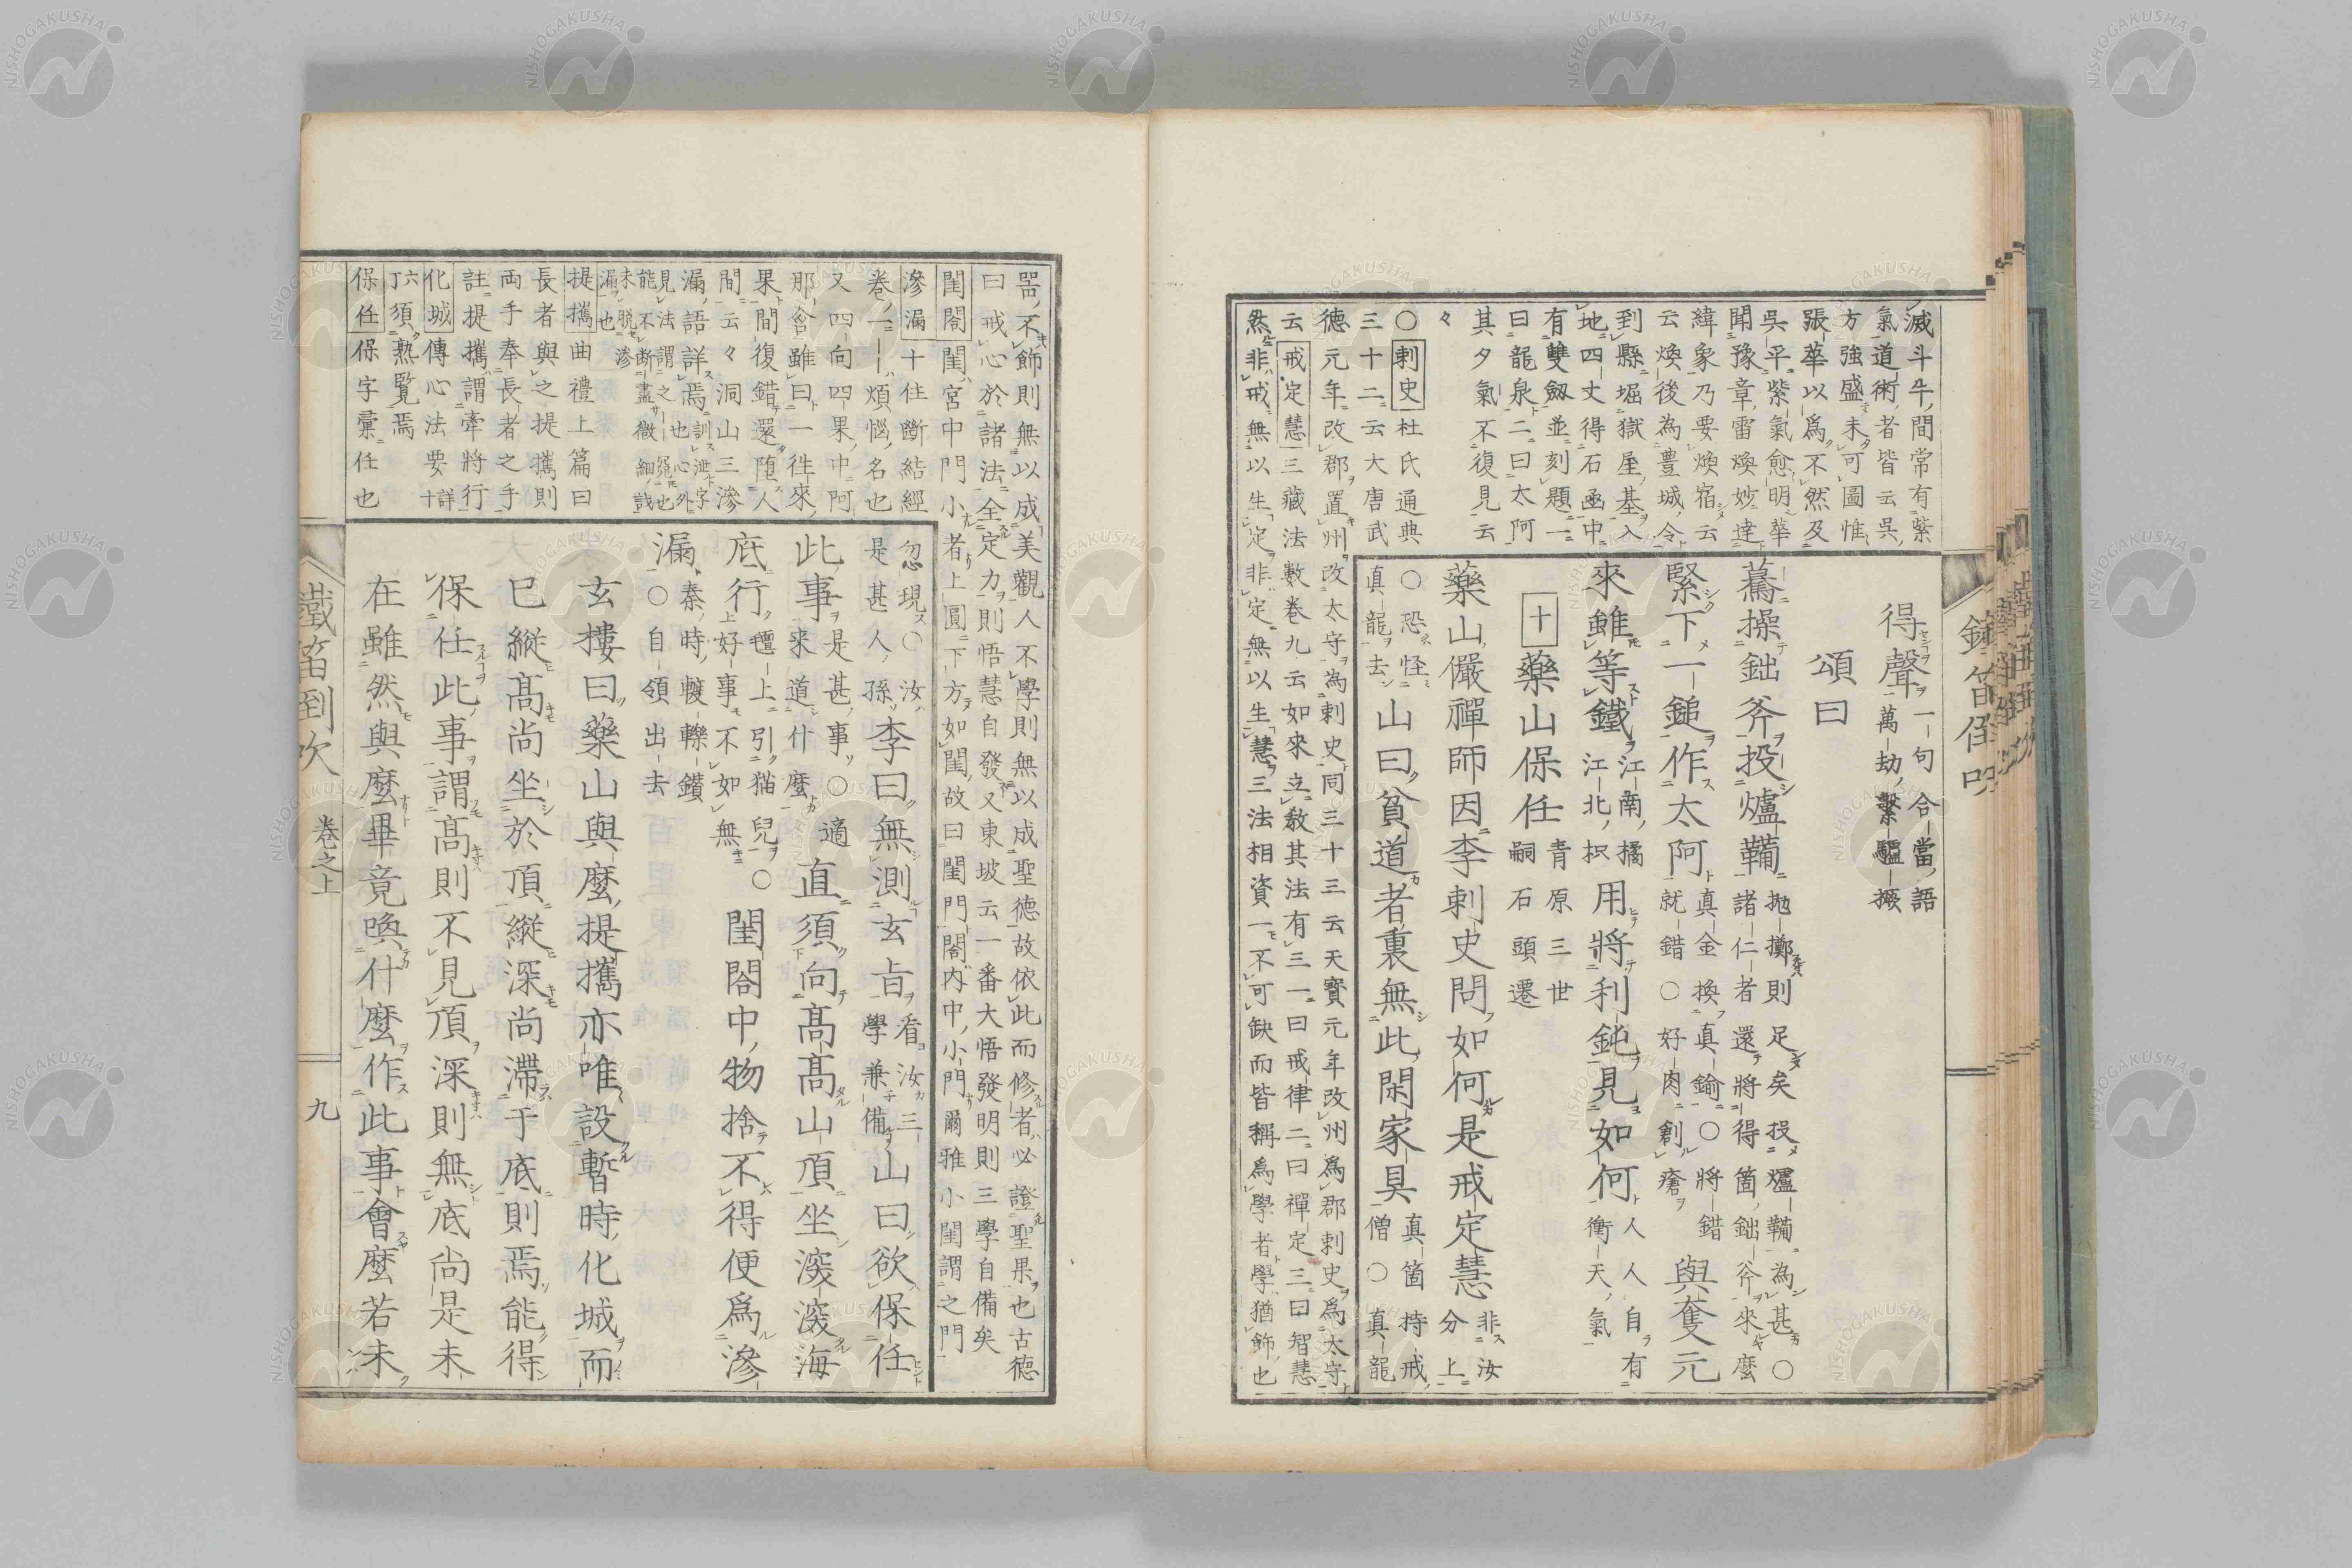 滅斗牛間常有紫
氣道術者皆云吳
方強盛未可圖惟
張華以爲不然及
吳平紫氣愈明華
聞豫章雷煥妙達
緯象乃要煥宿云
云煥後為豊城令
到縣堀獄屋基入
地四丈得石函中
有雙劔並刻題一
曰龍泉二曰太阿
其夕氣不復見云
々
〇刺史杜氏通典
三十二云大唐武
德元年改郡置州改太守為刺史同三十三云天寶元年改州爲郡刺史爲太守
云戒定慧三藏法數卷九云如來立教其法有三一曰戒律二曰禪定三曰智慧
然非戒無以生定非定無以生慧三法相資一不可缺而皆稱爲學者學猶飾也
得聲一句合當語
萬劫繫驢橛
頌曰
驀操鈯斧投爐鞴拋擲則足矣投爐鞴為甚〇
諸仁者還將得箇鈯斧來麼
緊下一鎚作太阿真金換真鍮〇將錯
就錯〇好肉創瘡與奪元
來雖等鐵江南橘
江北枳用將利鈍見如何人人自有
衝天氣
十藥山保任青原三世
嗣石頭遷
藥山儼禪師因李刺史問如何是戒定慧非汝
分上
〇恐怪
真龍去山曰貧道者裏無此閑家具真箇持戒
僧〇真龍
噐不飾則無以成美觀人不學則無以成聖德故依此而修者必證聖果也古德
曰戒心於諸法全定力則悟慧自發又東坡云一番大悟發明則三學自備矣
閨閤閨宮中門小者上圓下方如閨故曰閨門閤內中小門爾雅小閨謂之門
滲漏十住斷結經
卷一一煩惱名也
又四向四果中阿
那含雖曰一徃來
果間復錯還墮人
間云々洞山三滲
漏語詳焉訓泄字
見法謂之也
能不斷盡微細
未脫滲
漏也
提攜曲禮上篇曰
長者與之提攜則
兩手奉長者之手
註提攜謂牽將行
化城傳心法要詳
十六
丁須熟覽焉
保任保字彙任也
忽現〇汝
是甚人孫李曰無測玄旨看汝三
學兼備山曰欲保任
此事是甚事〇適
來道什麼直須向高高山頂坐深深海
底行氊上引猫兒〇
好事不如無閨閤中物捨不得便爲滲
漏秦時𨍏轢鑽
〇自領出去
玄樓曰藥山與麼提攜亦唯設暫時化城而
已縱高尚坐於頂縱深尚滯于底則焉能得
保任此事謂高則不見頂深則無底尚是未
在雖然與麼畢竟喚什麼作此事會麼若未
鐵笛到吹
卷之上
九
NISHOGAKUSHA